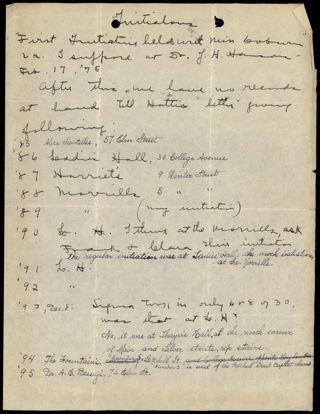 Initiations
First Initiation held with Miss Coburn
2nd. I suppose at Dr. J. H. Hanson
Feb. 17 '75
After this we have no records
at hand till Hattie's letter giving
following:
'85 57 Elm Street
'86 Ladies Hall, 30 College Avenue
'87 Harriet's 9 Winter Street
'88 Morrills 5 " "
'89 " (my initiation)
'90 L. H. I think at the Morrills, ask
Frank & Clara, their initiation
the regular initiation was at Ladies' Hall; the mock initiation
at the Morrills.
'91 L. H.
'92 "
'93, Dec. 8. Sigma Cor. is only 6 & 8 of 30,
was that at L. H?
No, it was at Thayer Hall, at the north corner
of Main and Silver streets, up stairs.
'94 The Fountains, St.
'95 Dr. A. E. Bessey's, 72 Elm St.